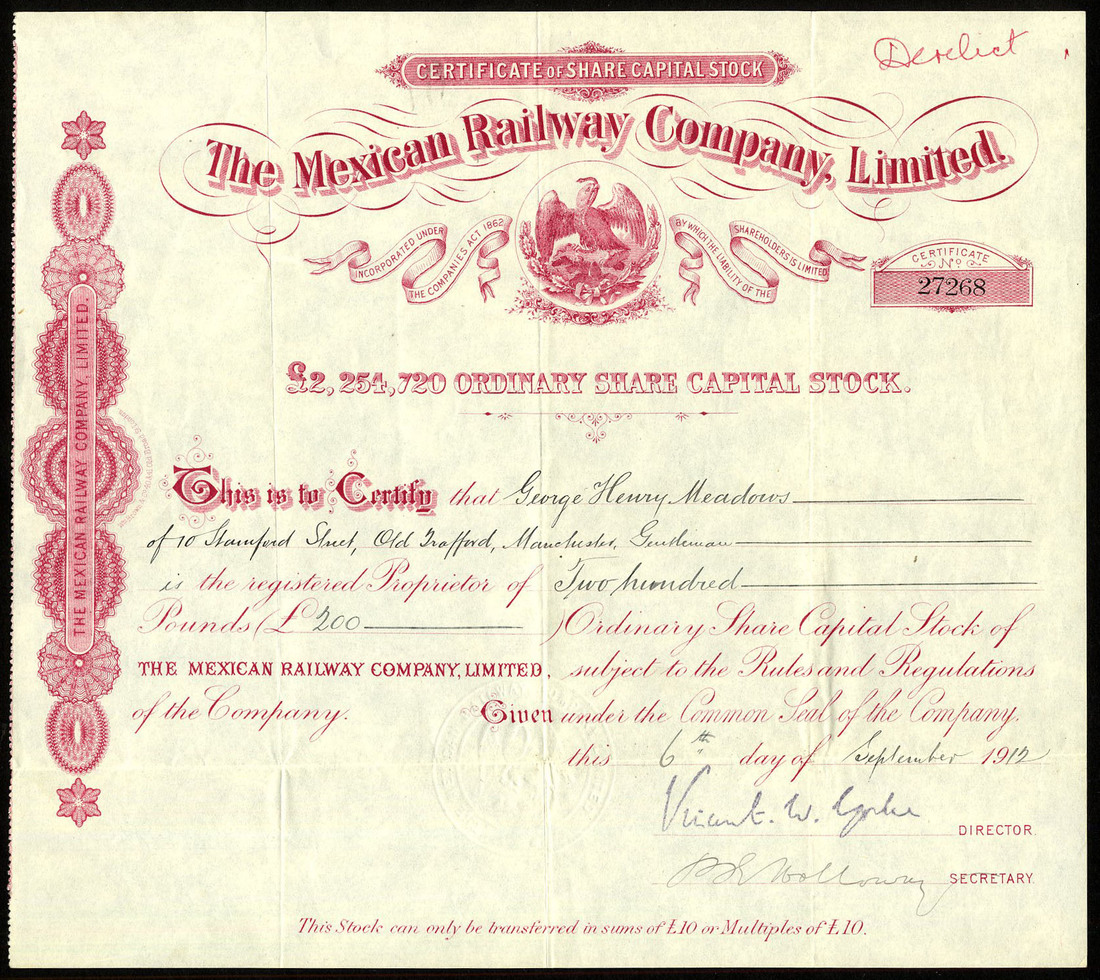 Derelict
CERTIFICATE OF SHARE CAPITAL STOCK
The Mexican Railway Company, Limited.
INCORPORATED UNDER
THE COMPANIES ACT 1862
BY WHICH THE LIABILITY OF THE
SHAREHOLDERS IS LIMITED
CERTIFICATE
No
27268
£2,254,720 ORDINARY SHARE CAPITAL STOCK.
This is to Certify that George Henry Meadows
of 10 Stamford Street, Old Trafford, Manchester, Gentleman
is the registered Proprietor of Two hundred
Pounds (£ 200 ) Ordinary Share Capital Stock of
THE MEXICAN RAILWAY COMPANY, LIMITED, subject to the Rules and Regulations
of the Company. Given under the Common Seal of the Company.
this 6th day of September 1912
Vincent. W. Yorke
DIRECTOR.
Holloway SECRETARY.
This Stock can only be transferred in sums of £10 or Multiples of £10.
THE MEXICAN RAILWAY COMPANY, LIMITED.